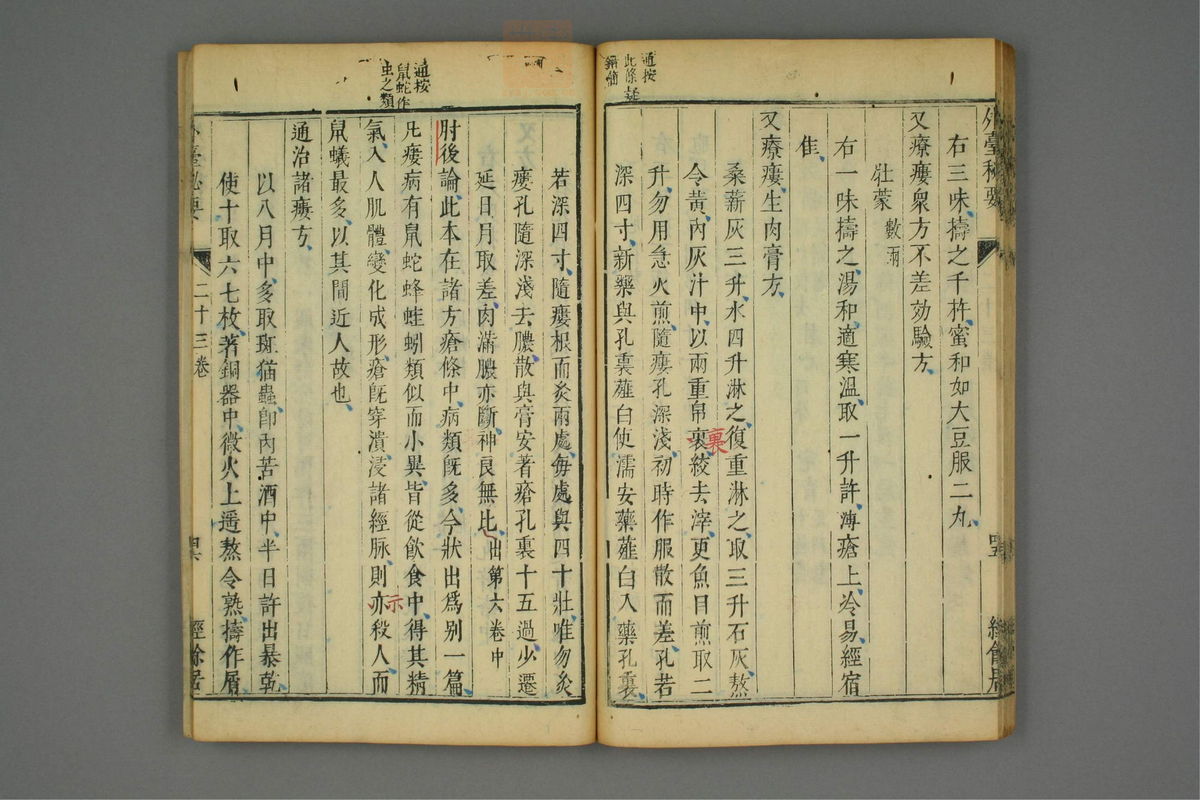 外臺秘要
右三味擣之千杵蜜和如大豆服二丸
又療瘻衆方不差効驗方
牡蒙數兩
右一味擣之湯和適寒溫取一升許薄瘡上冷易經宿
佳
又療瘻生肉膏方
桑薪灰三升水四升淋之復重淋之取三升石灰熬
令黄內灰汁中以兩重帛裹絞去滓更魚目煎取二
升勿用急火煎隨瘻孔深淺初時作服散而差孔若
深四寸新藥與孔裏薤白使濡安藥薤白入藥孔裏
通按
此條疑
錯簡
裹
若深四寸隨瘻根而灸兩處每處與四十壯唯勿灸
瘻孔隨深淺去膿散與膏安著瘡孔裏十五過少遷
延日月取差肉滿膿亦斷神良無比出第六卷中
肘後論此本在諸方瘡條中病類旣多今狀出爲别一篇
凡瘻病有鼠蛇蜂蛙蚓類似而小異皆從飲食中得其精
氣入人肌體變化成形瘡旣穿潰浸諸經脉則亦殺人而
鼠蟻最多以其間近人故也
通治諸瘻方
以八月中多取斑猫蟲卽內苦酒中半日許出暴乾
使十取六七枚著銅器中微火上遥熬令熟擣作屑
通按
鼠蛇作
虫之類
示
外臺秘要
二十三卷
經餘居